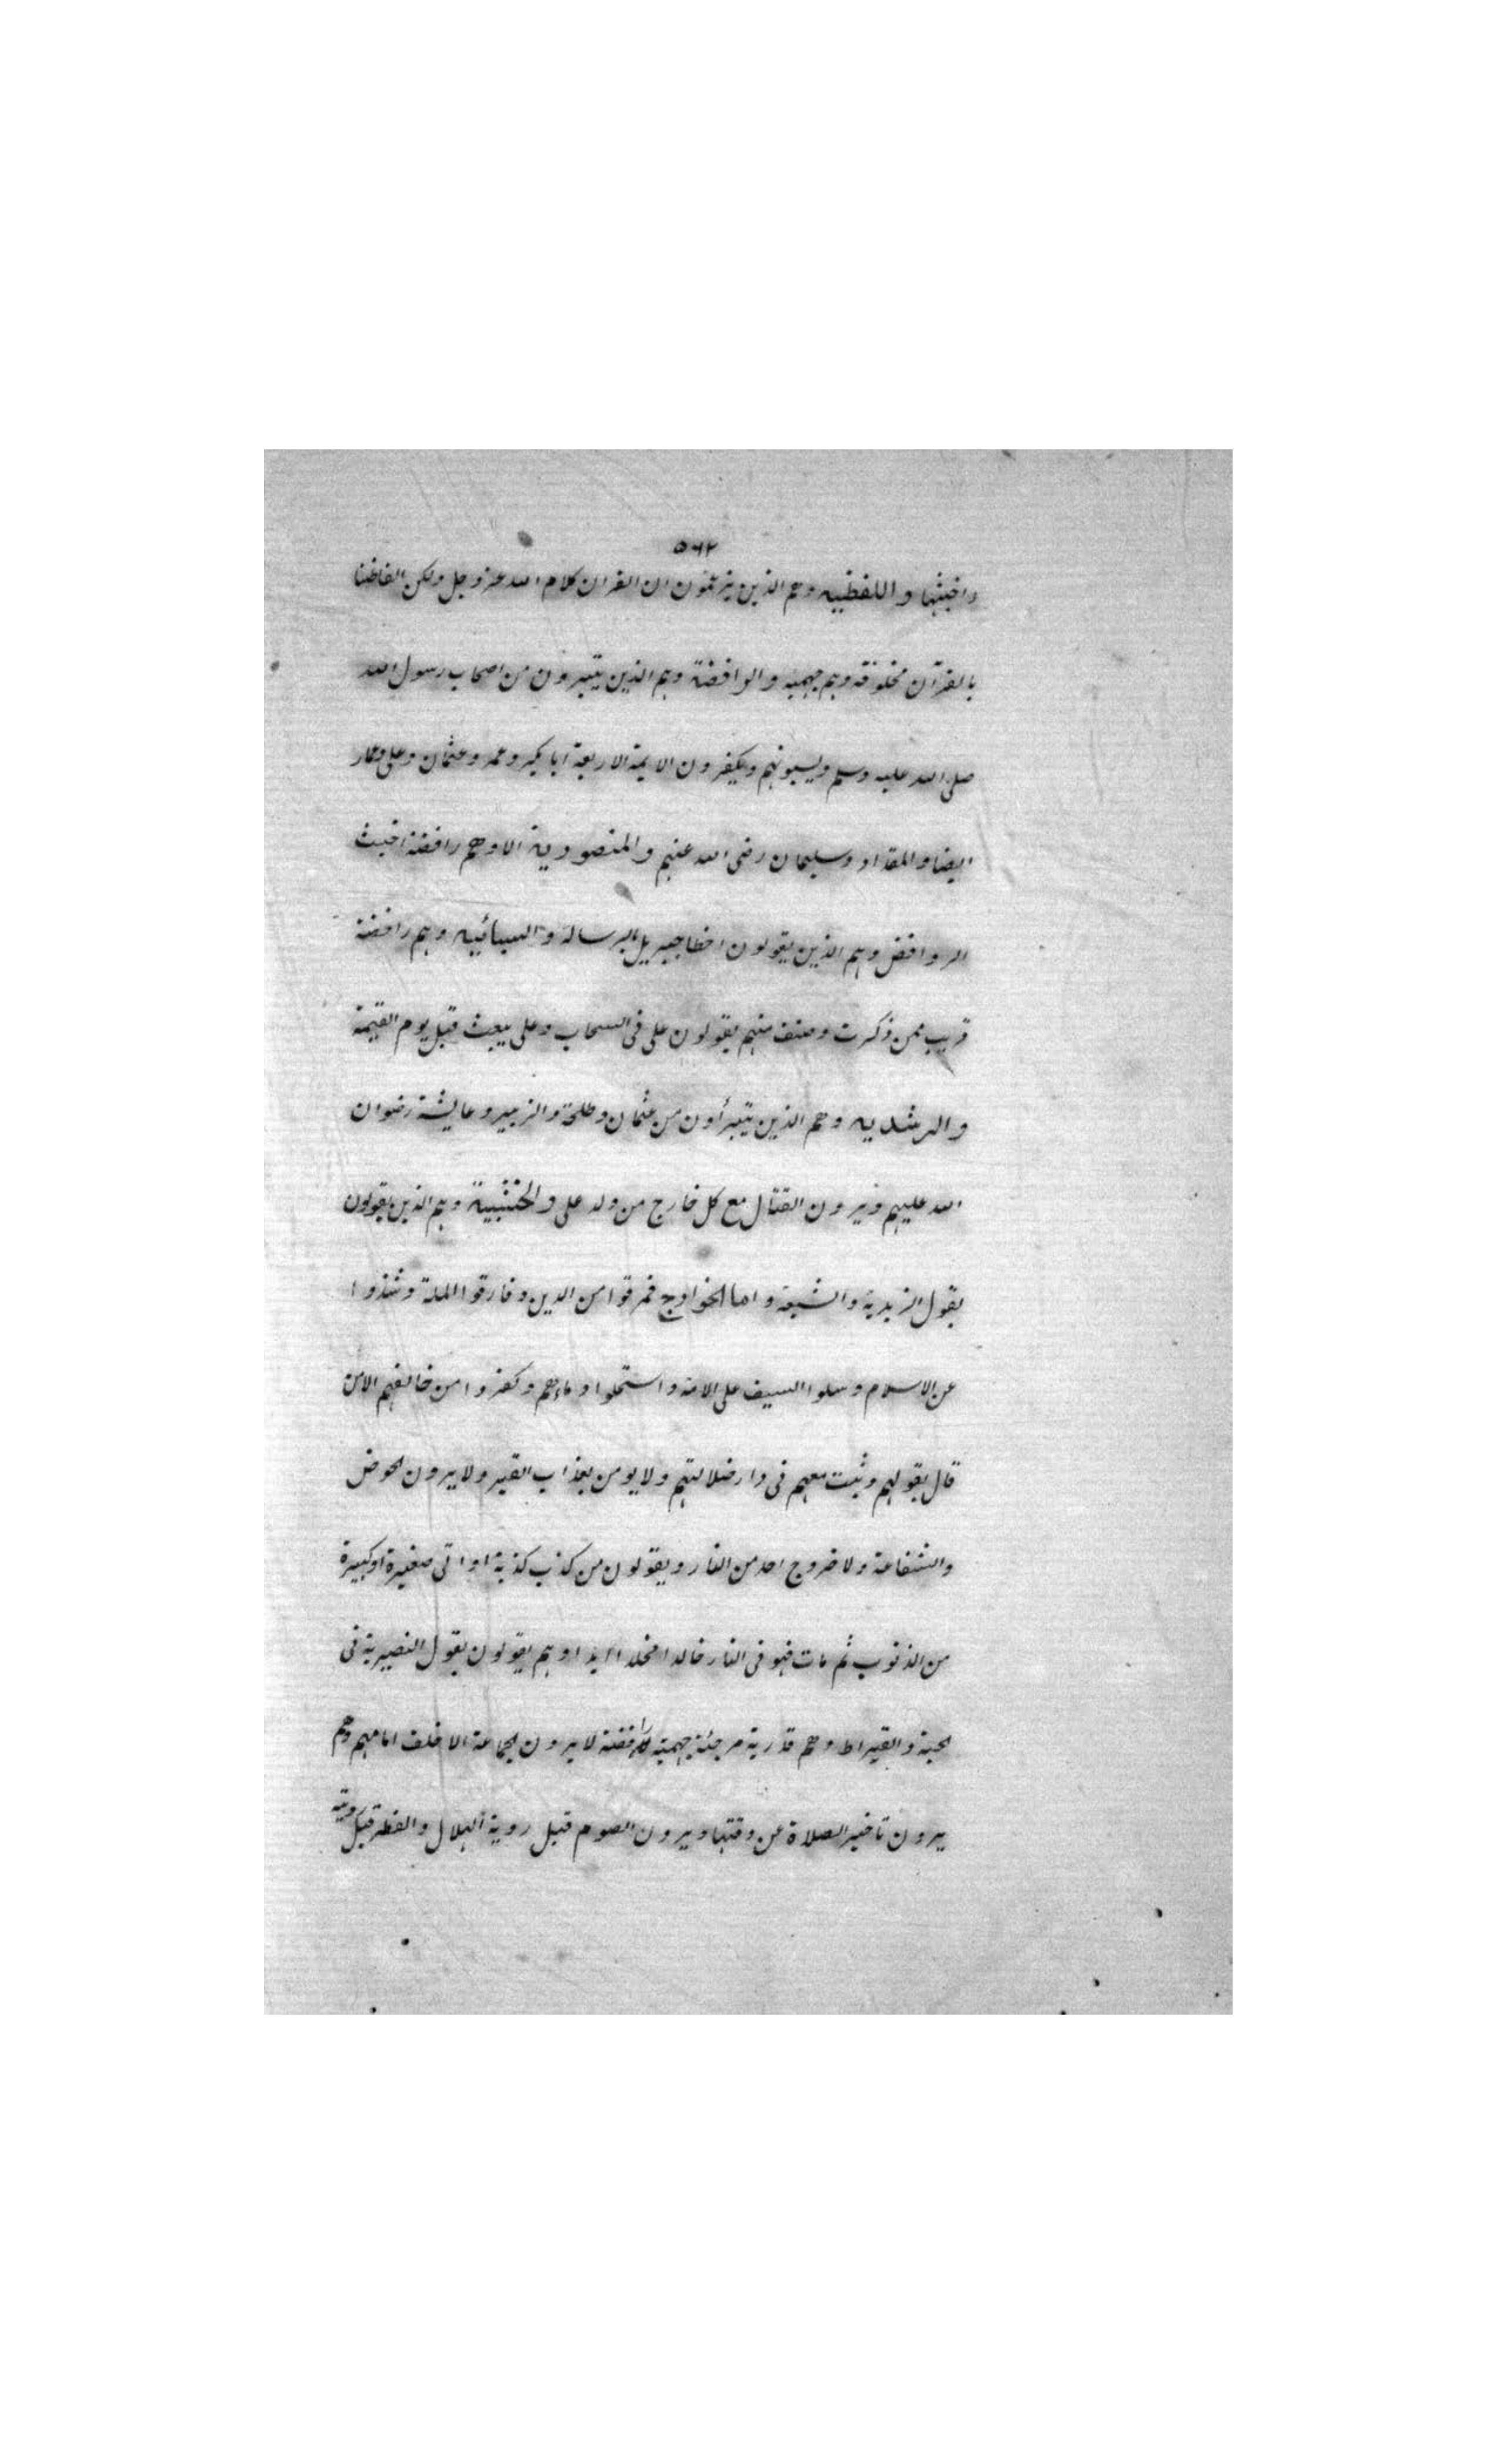 ٥٦٢
واخبثها واللفظيه وهم الذين يزعمون ان القران كلام الله عز وجل ولكن الفاظنا
بالقرآن مخلوقة وهم جهميه والرافضة وهم الذين يتبرون من اصحاب رسول الله
صلى الله عليه وسلم ويسبونهم ويكفرون الايمة الاربعة ابا بكير وعمر وعثمان وعلى وعمار
ايضا والمقداد وسليمان رضى الله عنهم والمنصورية الاوهم رافضة اخبث
الروافض وهم الذين يقولون اخطا جبيريل بالرسالة والسبائيه وهم رافضة
قريب ممن ذكرت وصنف منهم يقولون على فى السحاب وعلى يبعث قبل يوم القيمة
والرشديه وهم الذين يتبرأون من عثمان وطلحة والزبير وعايشة رضوان
الله عليهم ويرون القتال مع كل خارج من ولد على والخشبية وهم الذين يقولون
بقول الزيدية والشيعة واما الخوارج فمرقوا من الدين وفارقوا الملة وشذوا
عن الاسلام وسلوا السيف على الامة واستحلوا دماءهم وكفروا من خالفهم الامن
قال بقولهم وثبت معهم فى دار ضلالتهم ولا يومن بعذاب القبر ولا يرون الحوض
والشفاعة ولا خروج احد من النار ويقولون من كذب كذبة او اتى صغيرة اوكبيرة
من الذنوب ثم مات فهو فى النار خالدا مخلدا ابدا وهم يقولون بقول النصيرية فى
الحبة والقيراط وهم قدرية مرجئة جهمية رافضة لا يرون الجماعة الا خلف امامهم وهم
يرون تاخير الصلاة عن وقتها ويرون الصوم قبل روية الهلال والفطر قبل رويته